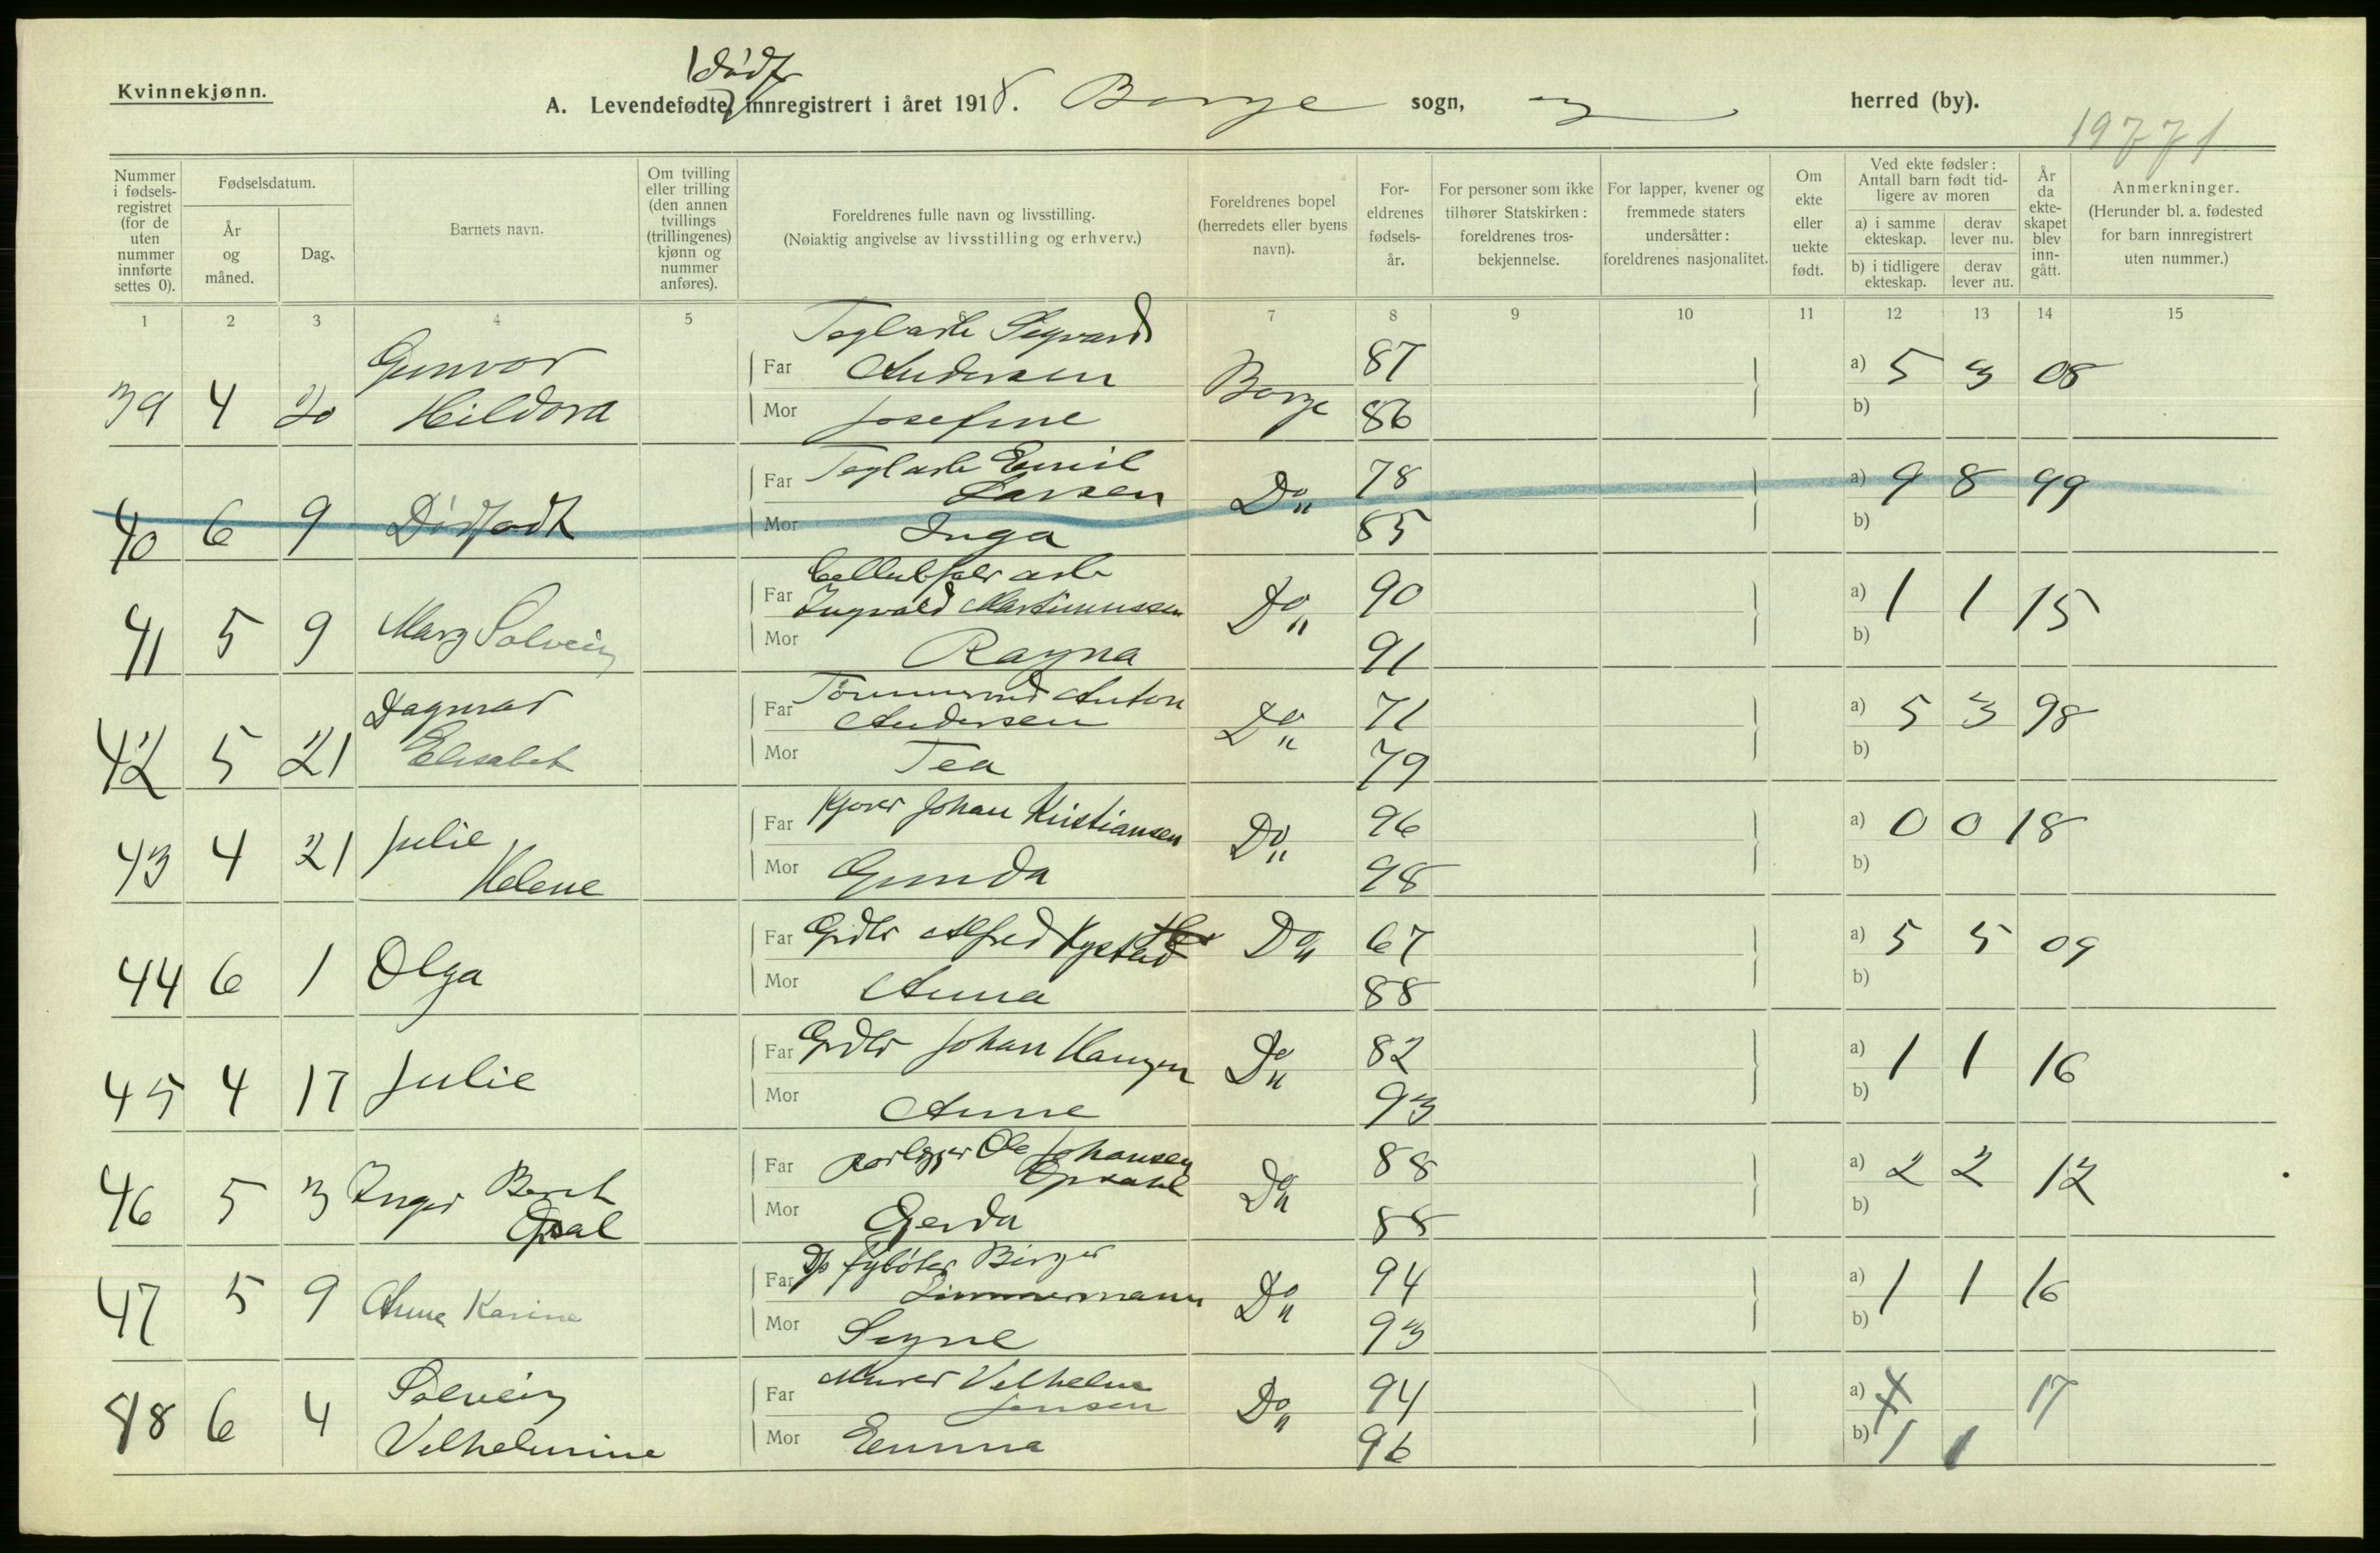 Kvinnekjønn.
1 dødf
A. Levendefødte, innregistrert i året 1918. Borge sogn, herred (by).
19771
Nummer i fødsels-registret (for de uten nummer innførte settes 0).
Fødselsdatum.
År og måned.
Dag.
Barnets navn.
Om tvilling eller trilling (den annen tvillings (trillingenes) kjønn og nummer anføres).
Foreldrenes fulle navn og livsstilling.
(Nøiaktig angivelse av livsstilling og erhverv.)
Foreldrenes bopel (herredets eller byens navn).
For-eldrenes fødsels-år.
For personer som ikke tilhører Statskirken: foreldrenes tros-bekjennelse.
For lapper, kvener og fremmede staters undersåtter: foreldrenes nasjonalitet.
Om ekte eller uekte født.
Ved ekte fødsler: Antall barn født tid-ligere av moren
a) i samme ekteskap.
derav lever nu.
b) i tidligere ekteskap.
derav lever nu.
År da ekte-skapet blev inn-gått.
Anmerkninger.
(Herunder bl. a. fødested for barn innregistrert uten nummer.)
1 2 3 4 5 7 8 9 10 11 12 13 14 15
Teglarb Sigvard
Gunvor Far Andersen Borge 87 a) 5 3 08
39 4 20 Hildora Mor Josefine 86 b)
Far Teglarb Emil Larsen Do 78 a) 9 8 99
40 6 9 Dødfødt Mor Inga 85 b)
Cellulosear arb
Far Ingvald Martinussen Do 90 a) 1 1 15
41 5 9 Mary Solveig Mor Ragna 91 b)
Dagmar Far Tømmermd Anton Andersen Do 71 a) 5 3 98
42 5 21 Elisabet Mor Tea 79 b)
Far Kjører Johan Kristiansen Do 96 a) 0 0 18
43 4 21 Julie Helene Mor Gunda 98 b)
Far Grdbr Alfred Do 67 a) 5 5 09
44 6 1 Olga Mor Anna 88 b)
Far Grdbr Johan Hansen Do 82 a) 1 1 16
45 4 17 Julie Mor Anne 93 b)
Far Rørlegger Ole Johansen Opsahl Do 88 a) 2 2 12
46 5 3 Inger Berit Opsal Mor Gerda 88 b)
Far Fyrbøter Birger Zimmermann Do 94 a) 1 1 16
47 5 9 Anna Karine Mor Signe 93 b)
Solveig Far Murer Vilhelm Jensen Do 94 a) 17
48 6 4 Vilhelmine Mor Emma 96 b) 1 1